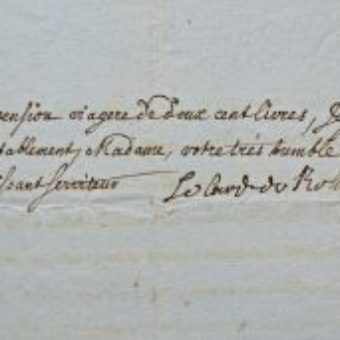 pension viagere de deux cent livres, J
tablement, Madame, votre trés humble
issant serviteur Le Card. de Roh